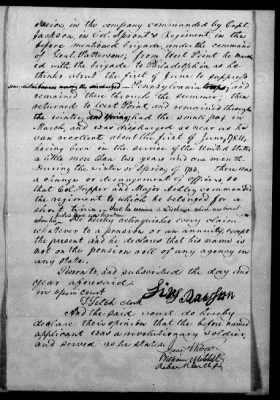 service, in the company commanded by Capt.
Jackson, in Col. Sprout's Regiment, in the
before mentioned brigade, under the command
of Genl. Patterson; from West Point he march
ed with the brigade to Philadelphia as he
thinks about the first of June to suppress
Pennsylvania troops, and
remained there through the summer; then
returned to West Point, and remained through
the winter and spring, had the small pox in
March, and was discharged as near as he
can recollect about the first of June,
having been in the service of the United States
a little more than two years and one month.
During the winter or spring of there was
a change or derangement of officers so
that Col. Tupper and Major Ashley commanded
the regiment to which he belonged for a
He hereby relinquishes every claim
whatever to a pension or an annuity, except
the present, and he declares that his name is
not on the pension roll of any agency in
any state.
Sworn to, and subscribed the day and
year aforesaid.
in open court
clerk
And the said court do hereby
declare their opinion that the before named
applicant was a revolutionary soldier,
and served as he states.